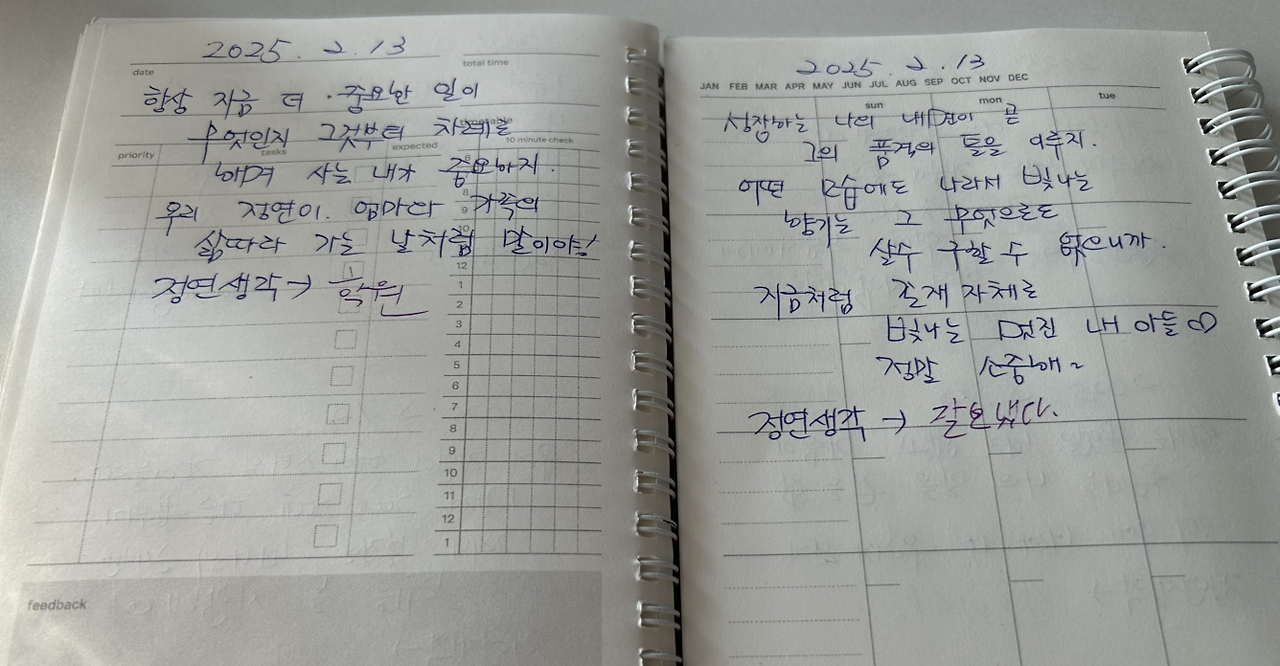 2025. 2. 13
date
total time
항상 지금 더 중요한 일이
무엇인지 그것부터 차례로
timetable
priority
tasks
expected
10 minute check
하며 사는 내가 중요하지.
우리 정연이. 엄마다 가족의
삶따라 가는 날처럼 말이야!
정연생각→ 학원
8
9
10
12
1
2
3
4
5
6
7
8
9
10
11
12
1
feedback
2025. 2. 13
JAN FEB MAR APR MAY JUN JUL AUG SEP OCT NOV DEC
sun
mon
tue
성장하는 나의 내면이 곧
그의 품격의 틀을 이루지.
어떤 모습에도 나라서 빛나는
향기는 그 무엇으로도
살수 구할 수 없으니까.
지금처럼 존재 자체로
빛나는 멋진 내 아들♡
정말 소중해~
정연생각 → 잘보냈다.